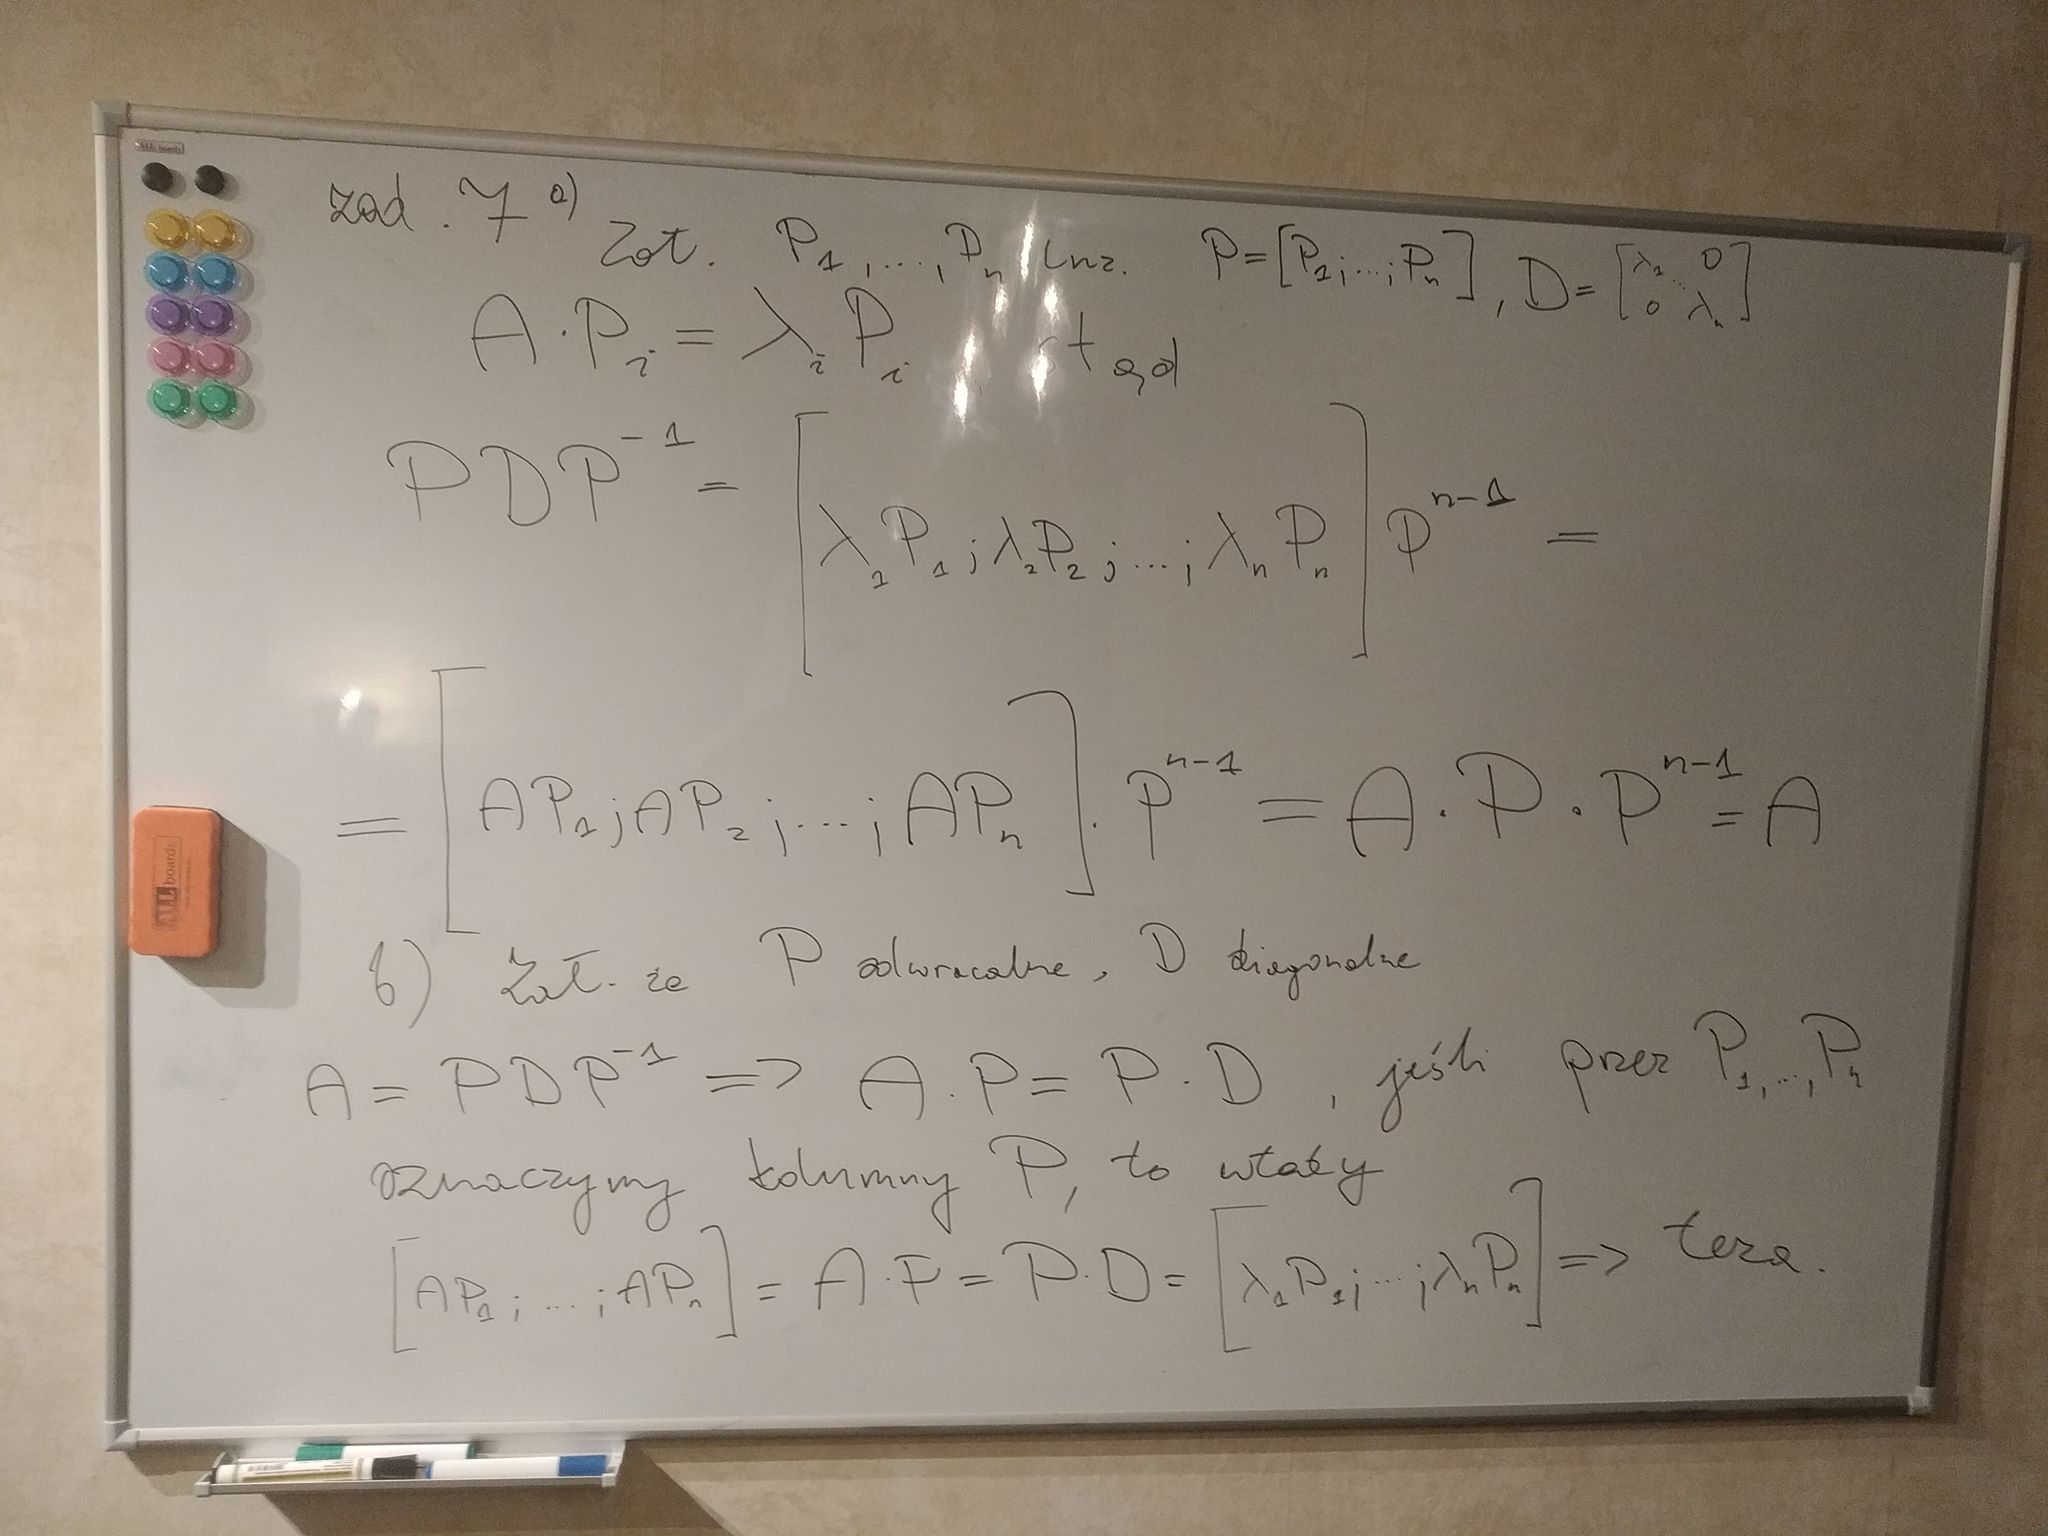 ALL boards
zad. 7 a)
Zał. P₁,...,Pₙ lnz. P=[P₁;...;Pₙ], D=[λ₁ 0 ⋱ 0 λₙ]
A·Pᵢ = λᵢPᵢ, stąd
PDP⁻¹ = [λ₁P₁; λ₂P₂; ...; λₙPₙ] Pⁿ⁻¹ =
= [AP₁; AP₂; ...; APₙ] · Pⁿ⁻¹ = A·P·Pⁿ⁻¹ = A
ALL boards
b) Zał. że P odwracalne, D diagonalne
A = PDP⁻¹ => A·P = P·D, jeśli przez P₁,...,Pₙ
oznaczymy kolumny P, to wtedy
[AP₁; ...; APₙ] = A·P = P·D = [λ₁P₁; ...; λₙPₙ] => teza.